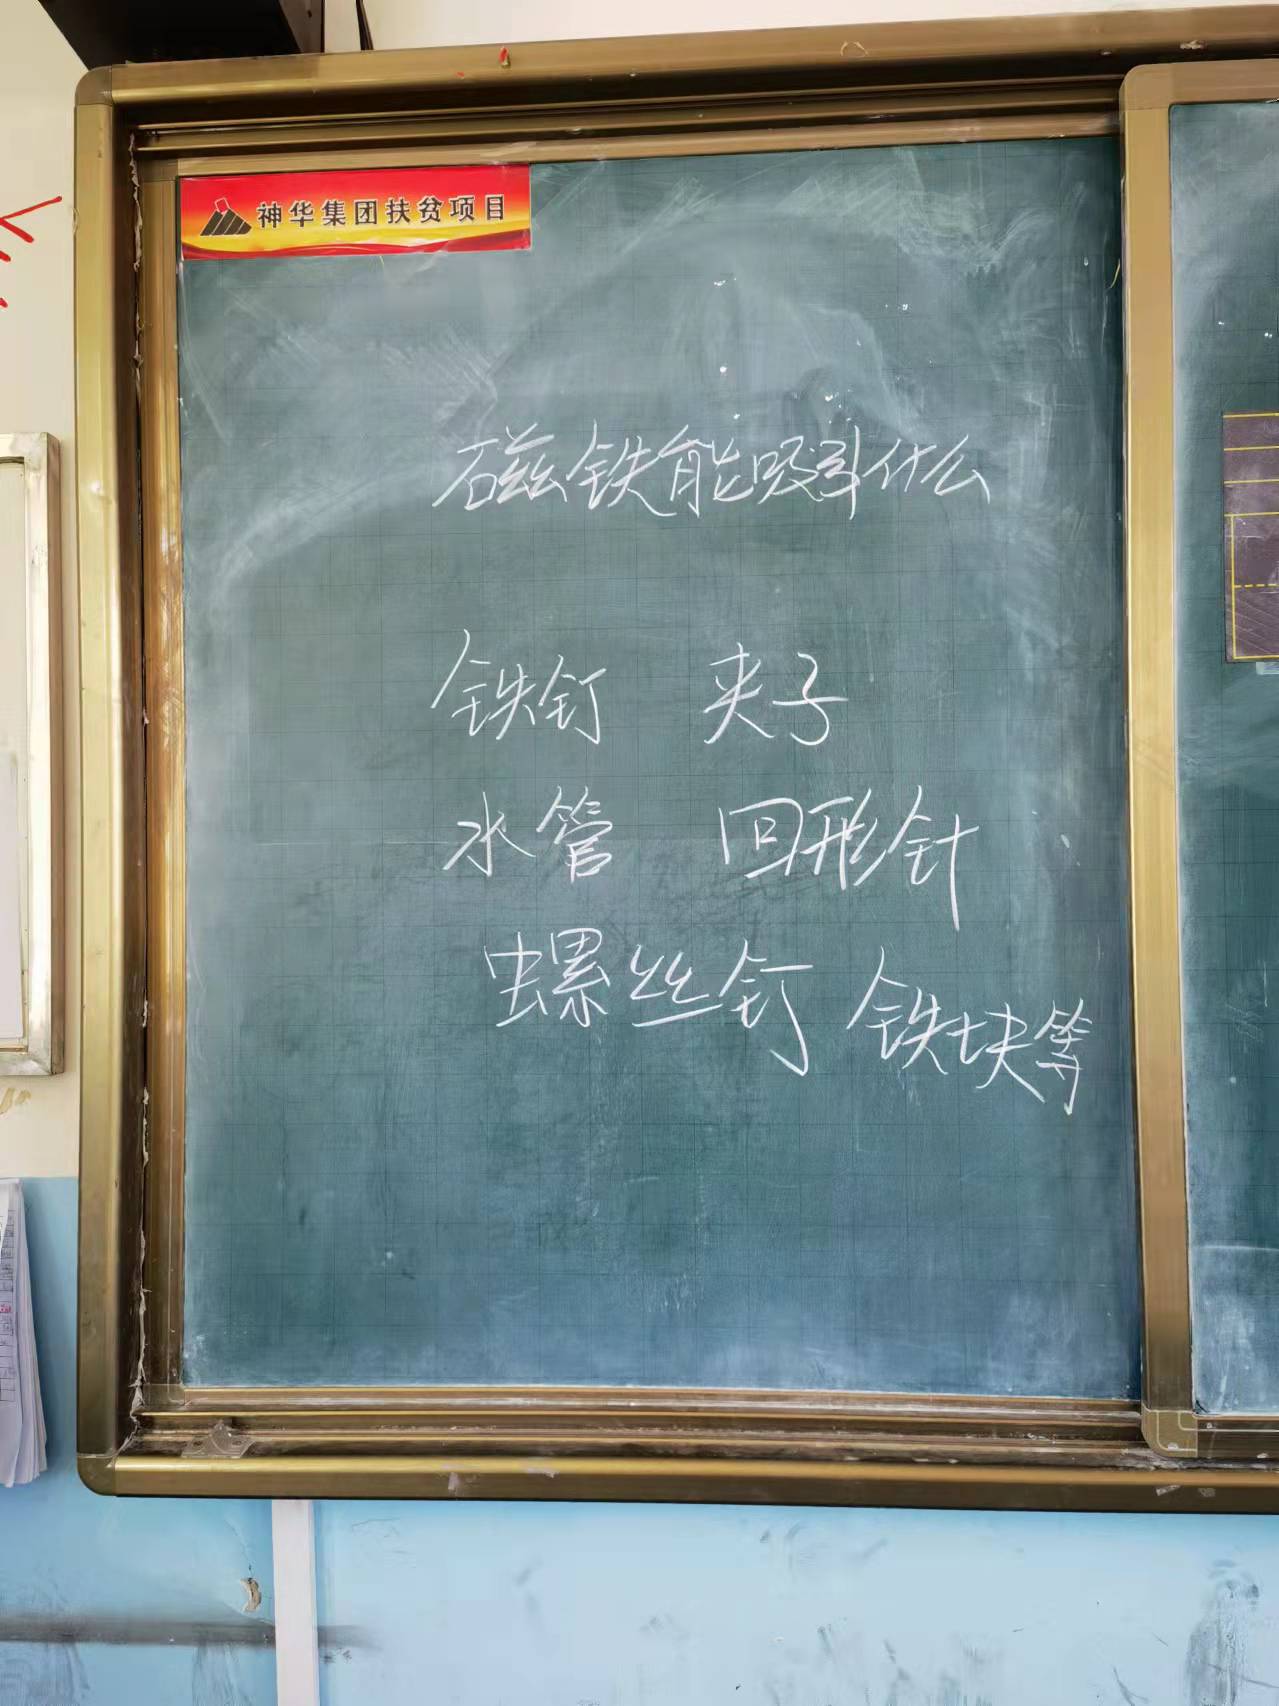 神华集团扶贫项目
磁铁能吸引什么
铁钉 夹子
水管 回形针
螺丝钉 铁块等